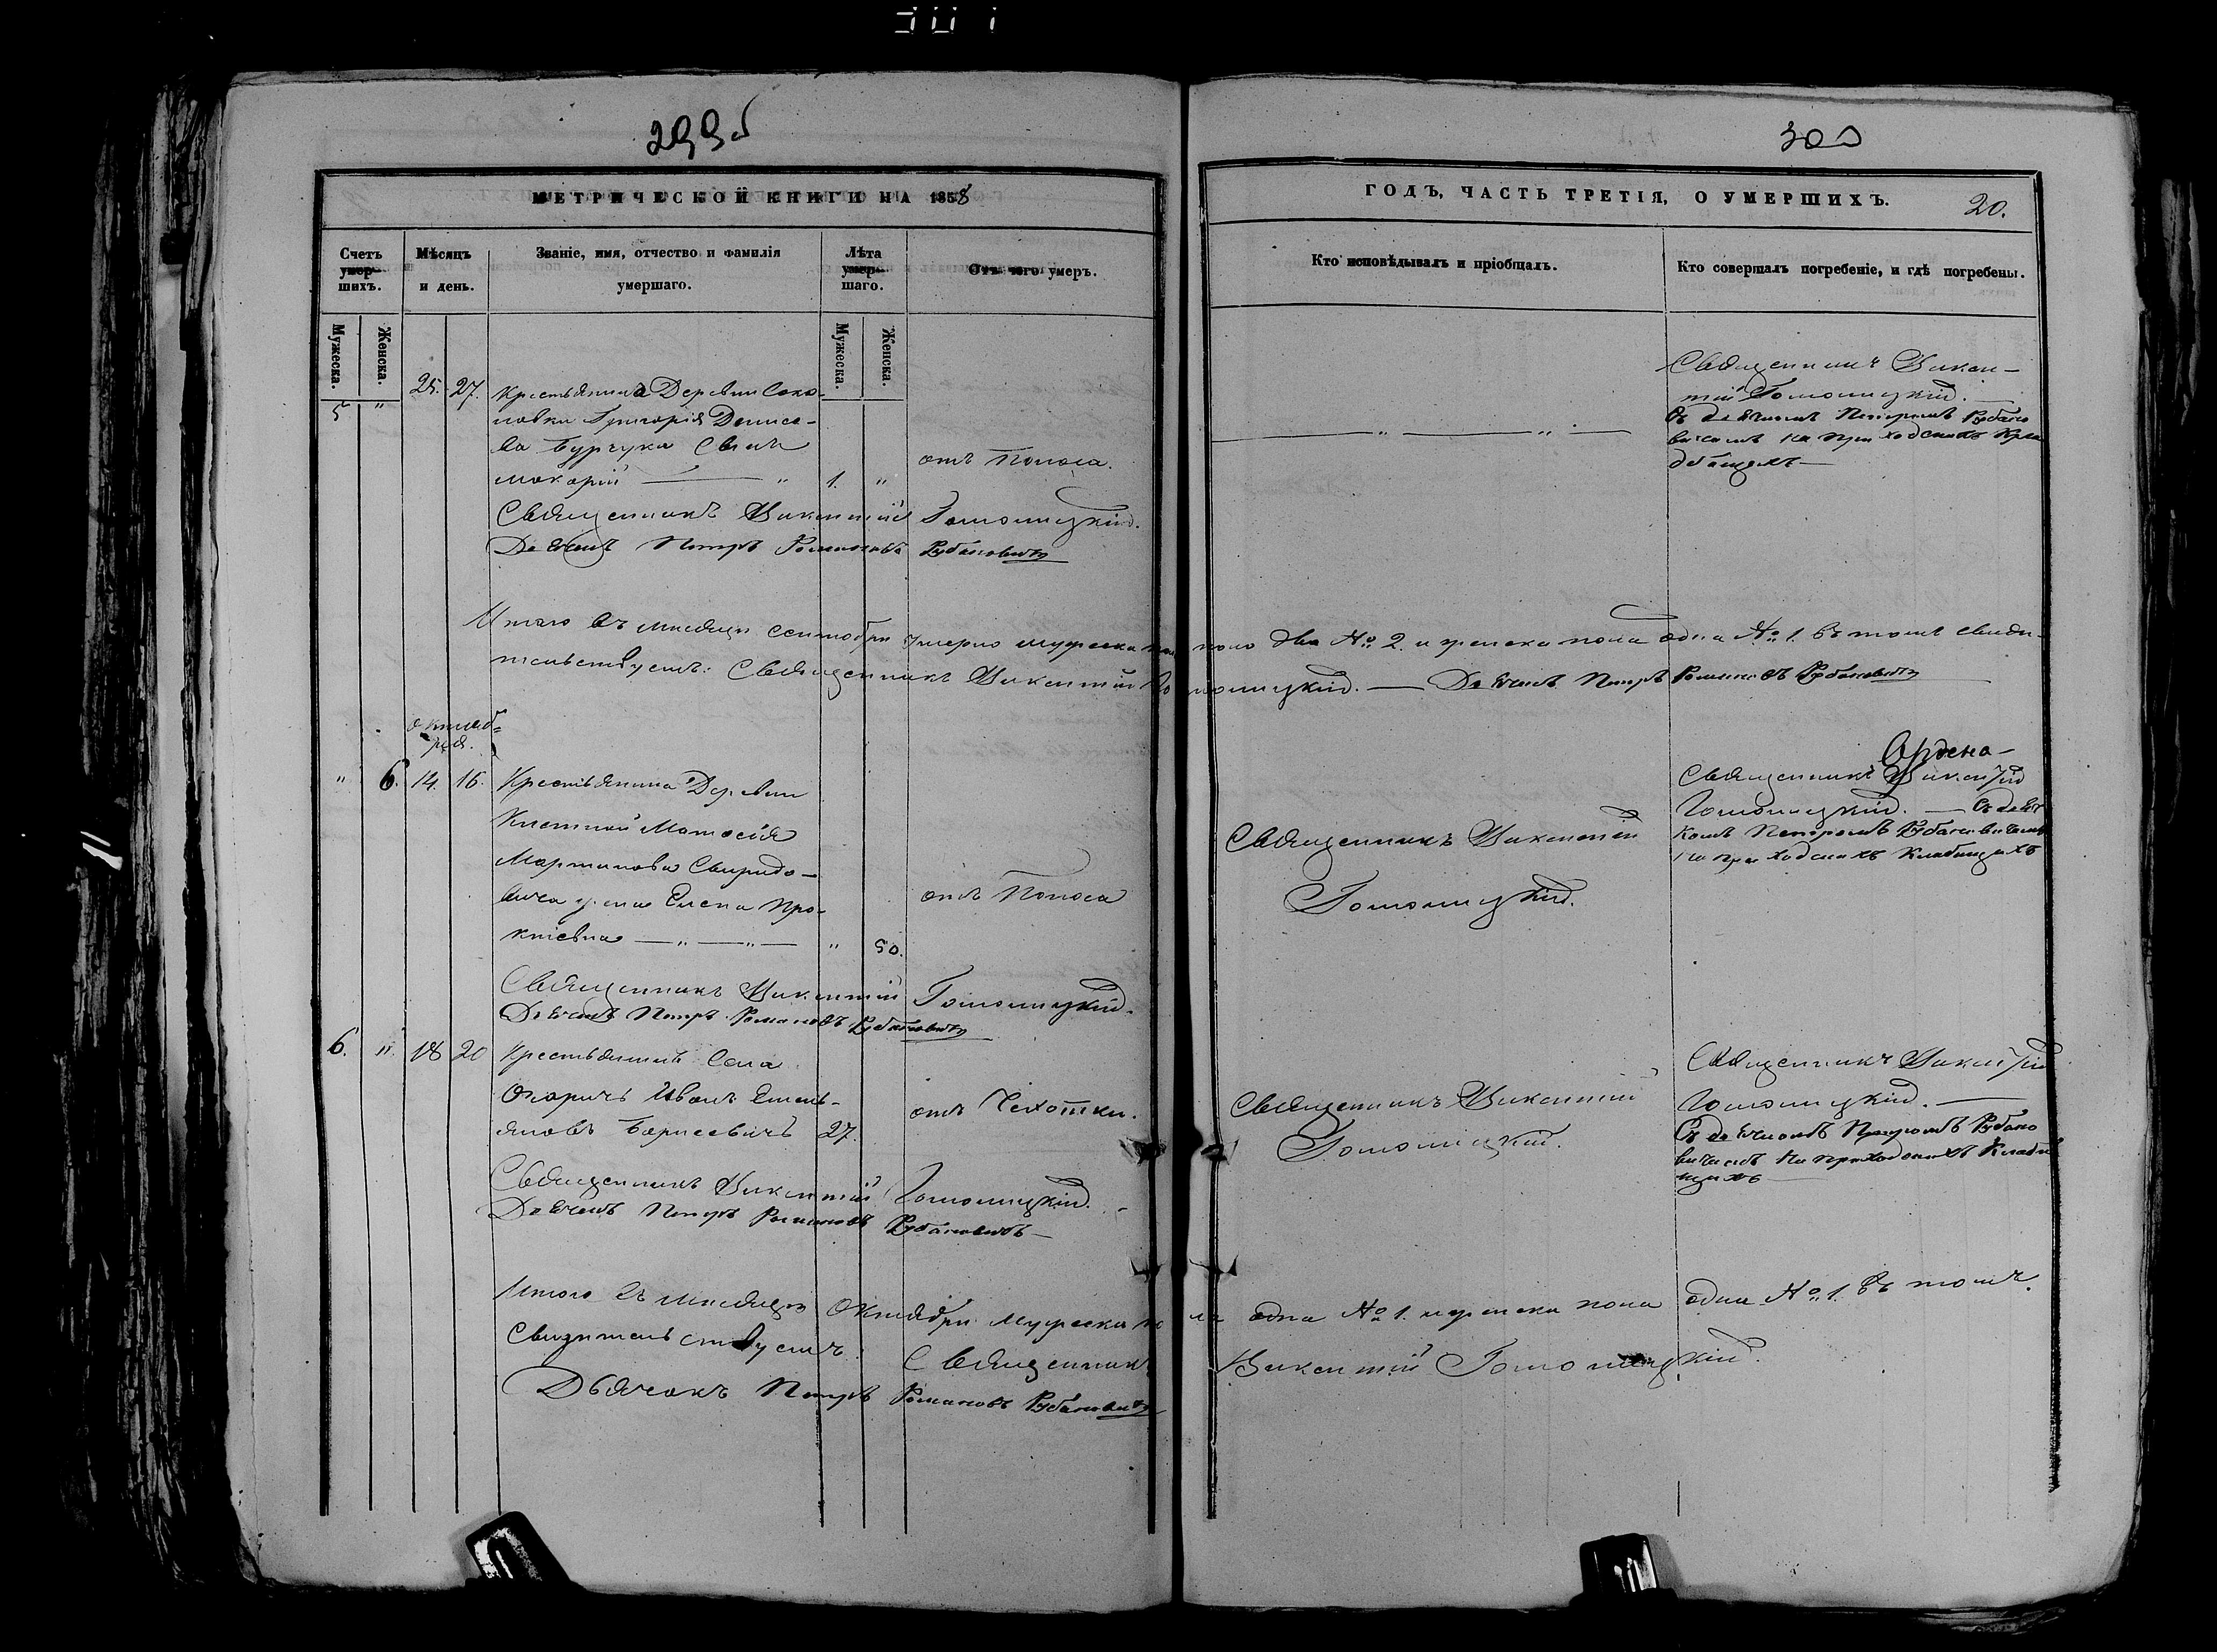 299б
300
МЕТРИЧЕСКОЙ КНИГИ НА 1858
ГОДЪ, ЧАСТЬ ТРЕТІЯ, О УМЕРШИХЪ.
20.
Счетъ умершихъ.
Мѣсяцъ и день.
Званіе, имя, отчество и фамилія умершаго.
Лѣта умершаго.
Отъ чего умеръ.
Кто исповѣдывалъ и пріобщалъ.
Кто совершалъ погребеніе, и гдѣ погребены.
Мужеска.
Женска.
Мужеска.
Женска.
5 " 25. 27.
Крестьянина Деревни Соко-
ловки Григорія Дениса-
ва Бурчука Сынъ
Макарій " 1. "
отъ Поноса.
Священникъ Викен-
тій Гомолицкій.
Съ дьячкомъ Петромъ Рубано
вичемъ на приходскихъ Кла
дбищахъ
Священникъ Викентій Гомолицкій.
Дьячекъ Петръ Романовъ Рубановичъ
Итого въ Месяце Сентябри умерло мужеска пола два № 2. и женска пола одна № 1. въ томъ свиде-
тельствуемъ: Священникъ Викентій Гомолицкій. Дьячекъ Петръ Романовъ Рубановичъ
Октяб=
ря.
" 6. 14. 16.
Крестьянина Деревни
Мартинова Свиридо-
вича жена Елена Про-
кпіевна " " " 50.
отъ Поноса
Священникъ Викентій
Гомолицкій.
Священникъ Викентій
Гомолицкій. Съ дьяч
комъ Петромъ Рубановичемъ
на приходскихъ Кладбищахъ
Священникъ Викентій Гомолицкій.
Дьячекъ Петръ Романовъ Рубановичъ
6. " 18 20
Крестьянинъ Села
Огаричъ Иванъ Емель-
яновъ Борисевичъ 27.
отъ Чехотки.
Священникъ Викентій
Гомолицкій.
Священникъ Викентій
Гомолицкій.
Съ дьячкомъ Петромъ Рубано
вичемъ на приходскихъ Кладби
щахъ
Священникъ Викентій Гомолицкій.
Дьячекъ Петръ Романовъ Рубановичъ
Итого въ Месяце Октябри мужеска пола одна № 1. и женска пола одна № 1. въ томъ
Свидетельствуемъ: Священникъ Викентій Гомолицкій.
Дьячокъ Петръ Романовъ Рубановичъ